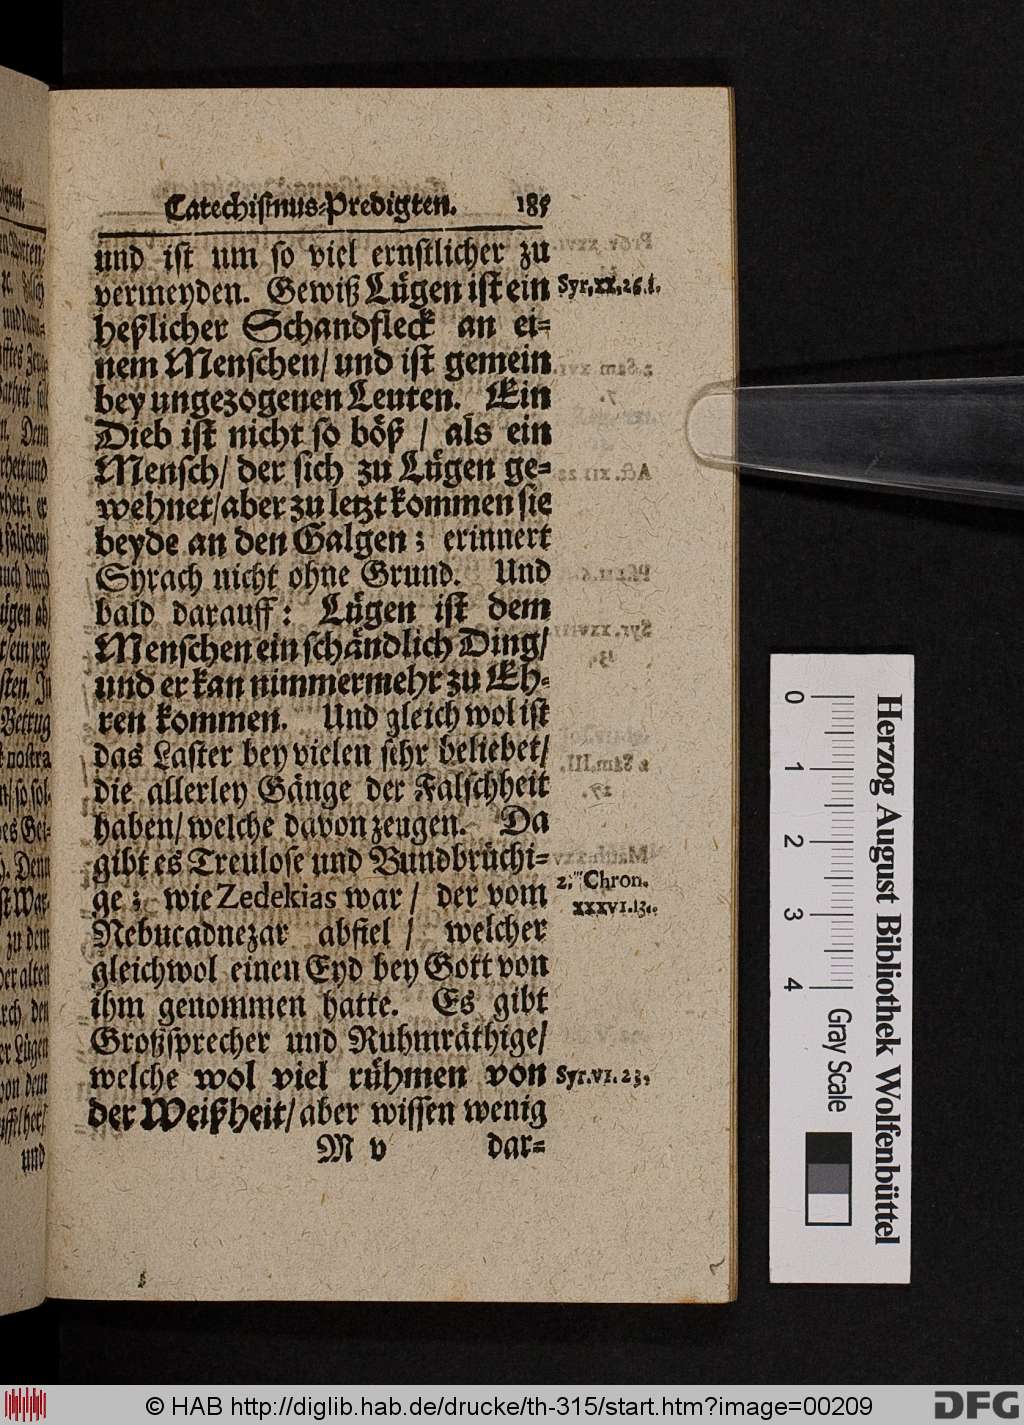 Catechiſmus-Predigten. 185
und iſt um ſo viel ernſtlicher zu
vermeyden. Gewiß Lügen iſt ein
heßlicher Schandfleck an ei-
nem Menſchen/ und iſt gemein
bey ungezogenen Leuten. Ein
Dieb iſt nicht ſo böß / als ein
Menſch/ der ſich zu Lügen ge-
wehnet/ aber zu letzt kommen ſie
beyde an den Galgen; erinnert
Syrach nicht ohne Grund. Und
bald darauff: Lügen iſt dem
Menſchen ein ſchändlich Ding/
und er kan nimmermehr zu Eh-
ren kommen. Und gleich wol iſt
das Laſter bey vielen ſehr beliebet/
die allerley Gänge der Falſchheit
haben/ welche davon zeugen. Da
gibt es Treuloſe und Bundbrüchi-
ge; wie Zedekias war / der vom
Nebucadnezar abfiel / welcher
gleichwol einen Eyd bey Gott von
ihm genommen hatte. Es gibt
Großſprecher und Ruhmräthige/
welche wol viel rühmen von
der Weißheit/ aber wiſſen wenig
M v dar-
Syr. XX. 26. ſ.
2. Chron.
XXXVI. 13.
Syr. VI. 23.
und
0 1 2 3 4
Gray Scale
Herzog August Bibliothek Wolfenbüttel
© HAB http://diglib.hab.de/drucke/th-315/start.htm?image=00209
DFG